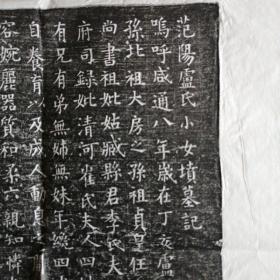 范陽盧氏小女墳墓記
嗚呼咸通八年歲在丁亥盧
孫北祖大房之孫祖貞皇任
尚書祖妣姑臧縣君李氏夫
府司錄妣清河崔氏夫人四
有兄有弟無姊無妹年纔四
自養育以及成人動息
容婉麗器質和柔六親知憐